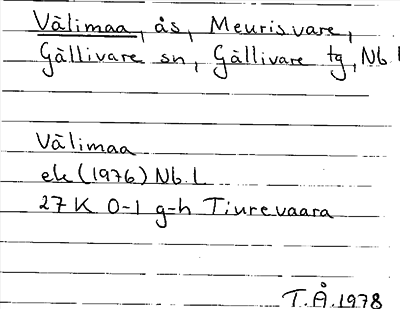 Välimaa, ås, Meurisvare,
Gällivare sn, Gällivare tg, Nb l
Välimaa
ek (1976) Nb. L
27 K 0-1 g-h Tiurevaara
T.Å. 1978